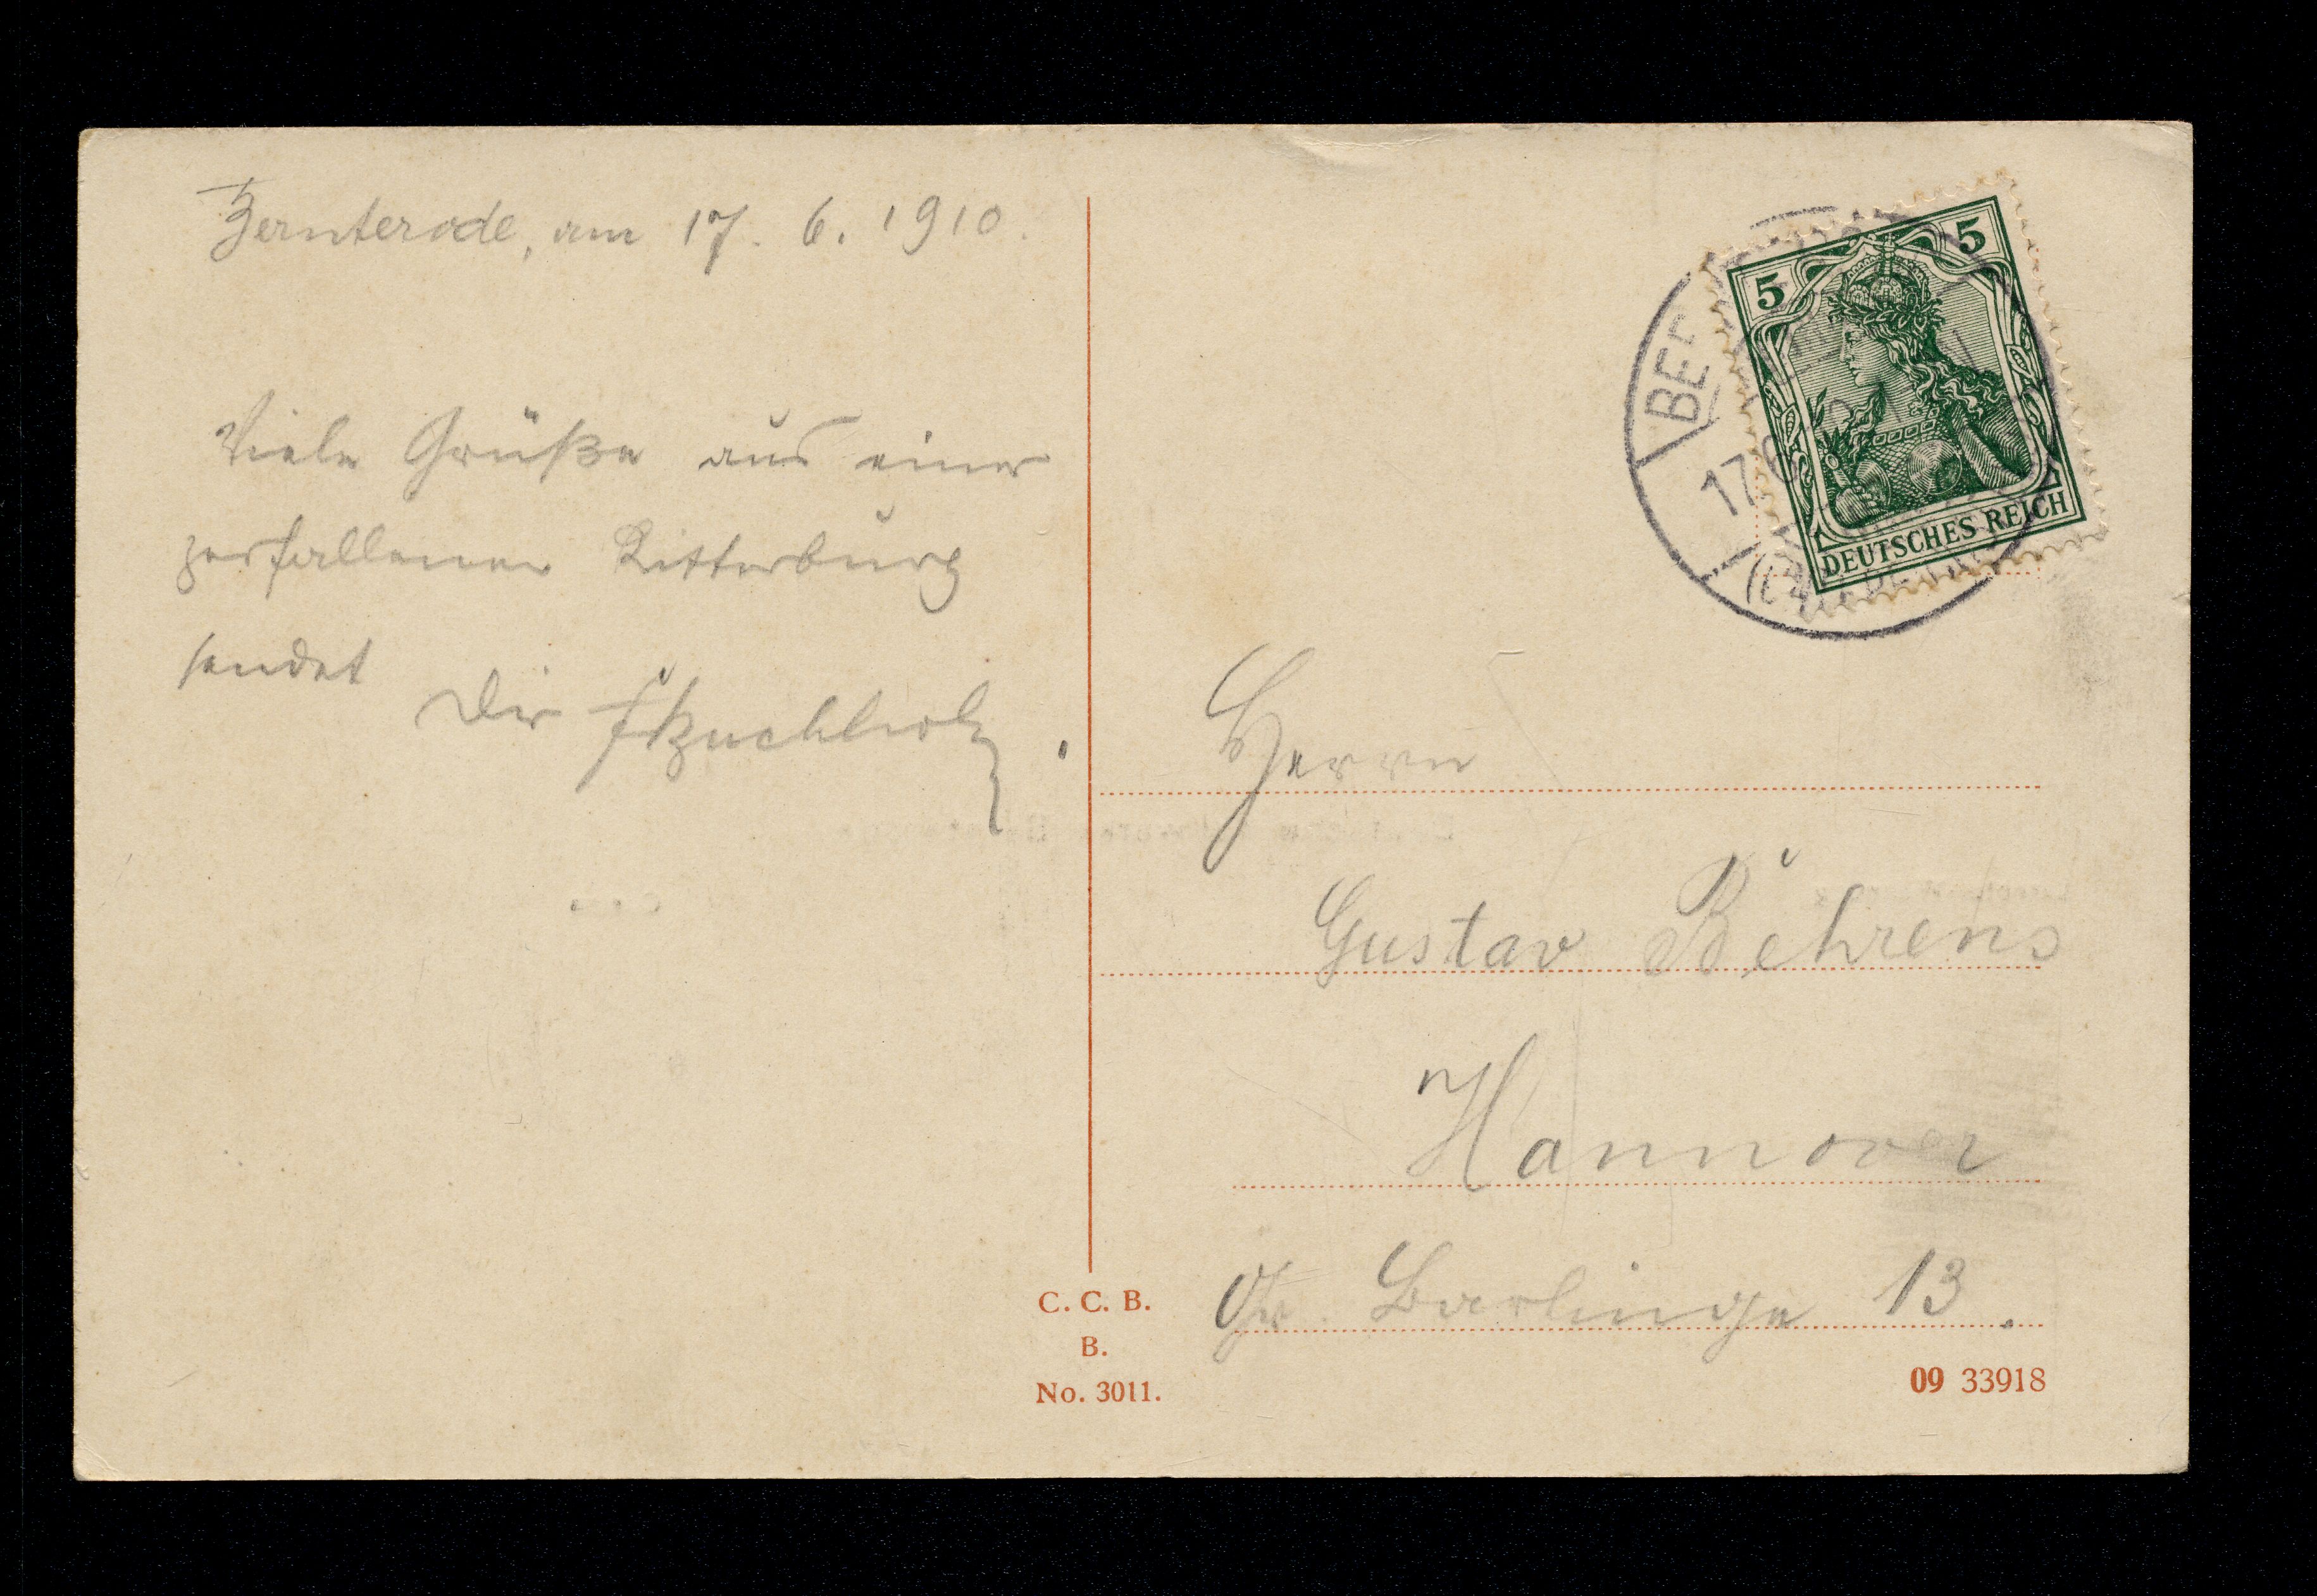 Bernterode, am 17. 6. 1910.
Viele Grüße aus einer
zerfallenen Ritterburg
sendet
Dir F. Buchholz.
5 5
DEUTSCHES REICH
17.6
Herrn
Gustav Behrens
Hannover
Gr. Barlinge 13.
C. C. B.
B.
No. 3011.
09 33918